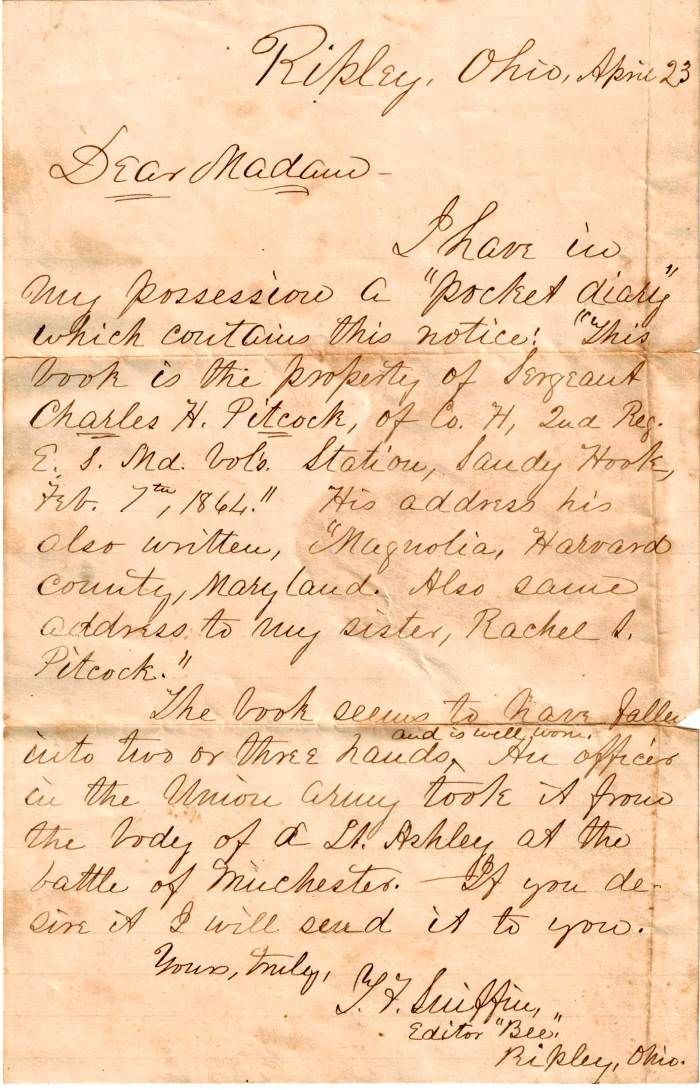 Ripley, Ohio, April 23
Dear Madam -
I have in
my possession a "pocket diary"
which contains this notice: "This
book is the property of Sergeant
Charles H. Pitcock, of Co. H, 2nd Reg.
E. S. Md. Vol's. Station, Sandy Hook,
Feb. 7th, 1864." His address his
also written, "Magnolia, Harvard
county, Maryland. Also same
address to my sister, Rachel S.
Pitcock."
The book seems to have fallen
and is well worn.
into two or three hands, An officer
in the Union army took it from
the body of a Lt. Ashley at the
battle of Winchester. — If you de-
sire it I will send it to you.
Yours, truly,
T. F. Sniffin,
Editor "Bee."
Ripley, Ohio.